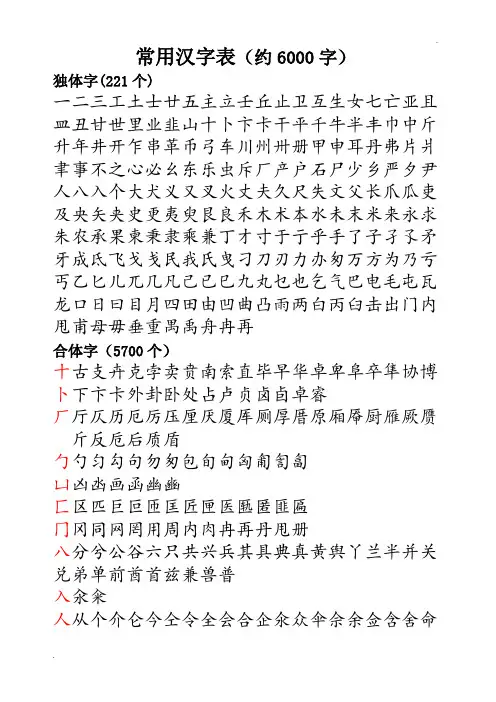 常用汉字表（约6000字）
独体字(221个)
一二三工土士廿五主立壬丘止卫互生女七亡亚且
皿丑甘世里业韭山十卜卞卡干平千牛半丰巾中斤
升年井开乍串革币弓车川州卅册甲申耳丹弗片爿
聿事不之心必幺东乐虫斥厂产户石尸少乡严夕尹
人八入个大犬义又叉火丈夫久尺失文父长爪瓜吏
及央矢夬史更夷臾艮良禾木术本水未末米来永求
朱农承果柬秉隶乘兼丁才寸于亍乎手了子孑孓矛
牙成氏飞戈戋民我氐曳刁刀刃力办匆万方为乃亏
丐乙匕儿兀几凡己已巳九丸乜也乞气巴电毛屯瓦
龙口日曰目月四田由凹曲凸雨两白丙臼击出门内
甩甫母毋垂重禺禹舟冉再
合体字（5700个）
十古支卉克孛卖贲南索直毕早华卓卑阜卒隼协博
卜下卞卡外卦卧处占卢贞卤卣卓睿
厂厅仄历厄厉压厘厌厦厍厕厚厝原厢厣厨雁厥赝
斤反卮后质盾
勹勺匀勾句勿匆包旬甸匈匍訇匐
凵凶凼画函幽豳
匚区匹巨叵匝匡匠匣医匦匿匪匾
冂冈同网罔用周内肉冉再丹甩册
八分兮公谷六只共兴兵其具典真黄舆丫兰半并关
兑弟单前酋首兹兼兽普
入汆籴
人从个介仑今仝令全会合企氽众伞佘余金含舍命